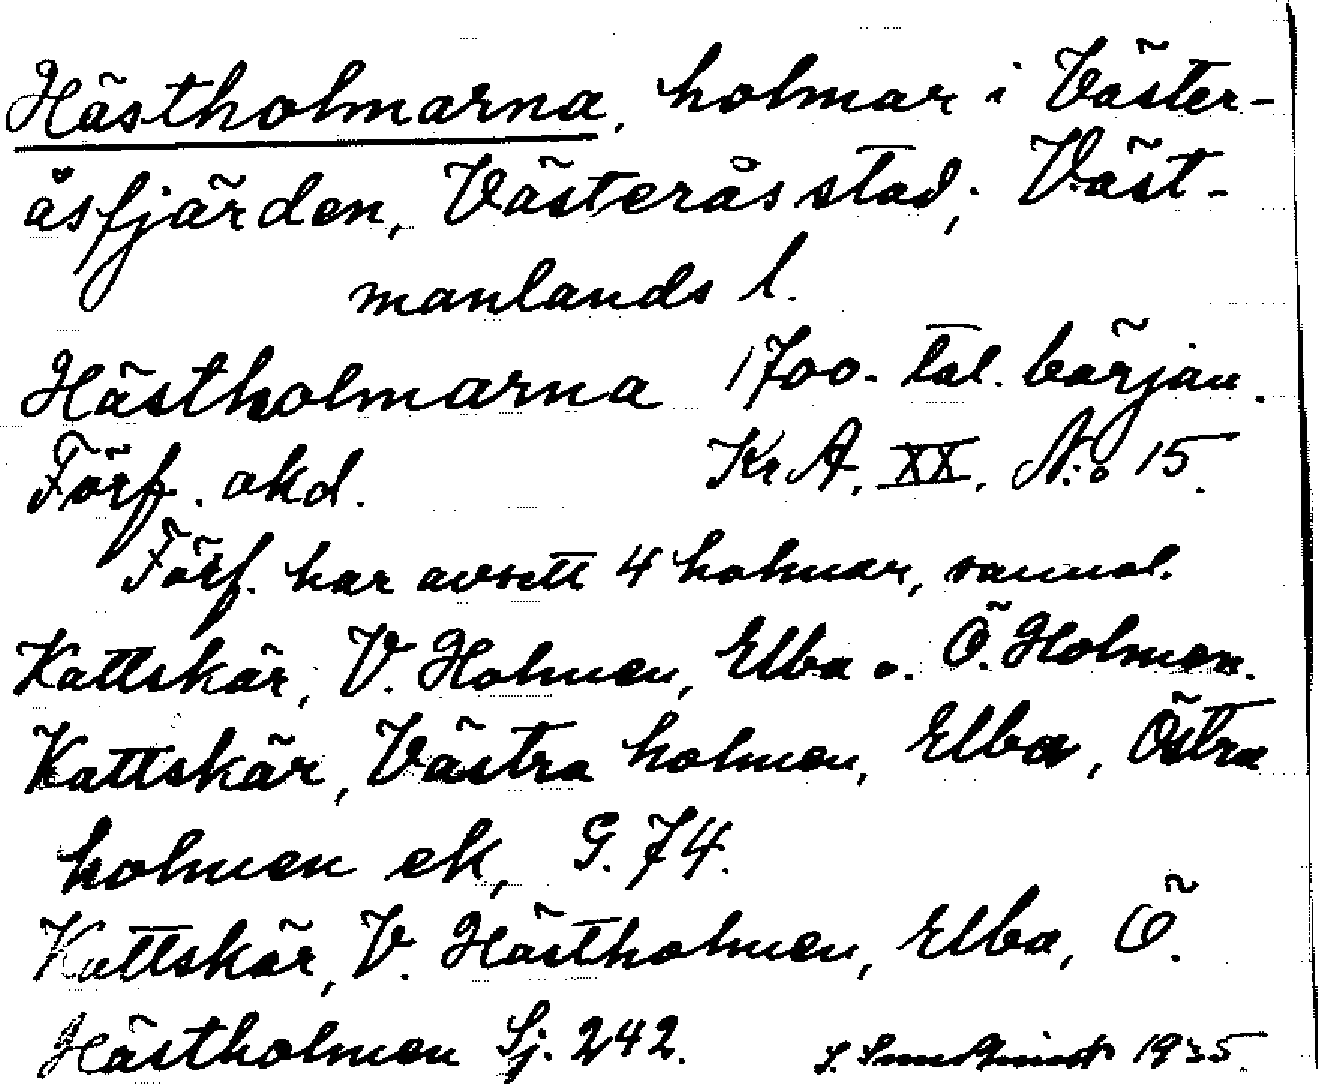 Hästholmarna, holmar i Väster-
åsfjärden, Västerås stad, Väst-
manlands l.
Hästholmarna 1700-tal. början.
Förf. okd. Kr A. XX. N:o 15.
Förf. har avsett 4 holmar, sannol.
Kattskär, V. Holmen, Elba o. Ö. Holmen.
Kattskär, Västra holmen, Elba, Östra
holmen ek, G. 74.
Kattskär, V. Hästholmen, Elba, Ö.
Hästholmen Sj. 242. S. 1935.